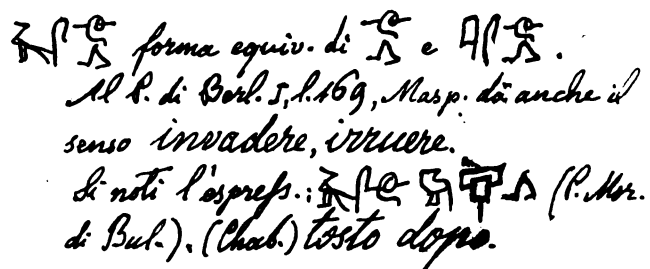 forma equiv. di e .
Al P. di Berl. I, l. 169, Masp. dà anche il
senso invadere, irruere.
Si noti l'espress.: (P. Mor.
di Bul.). (Chab.) tosto dopo.